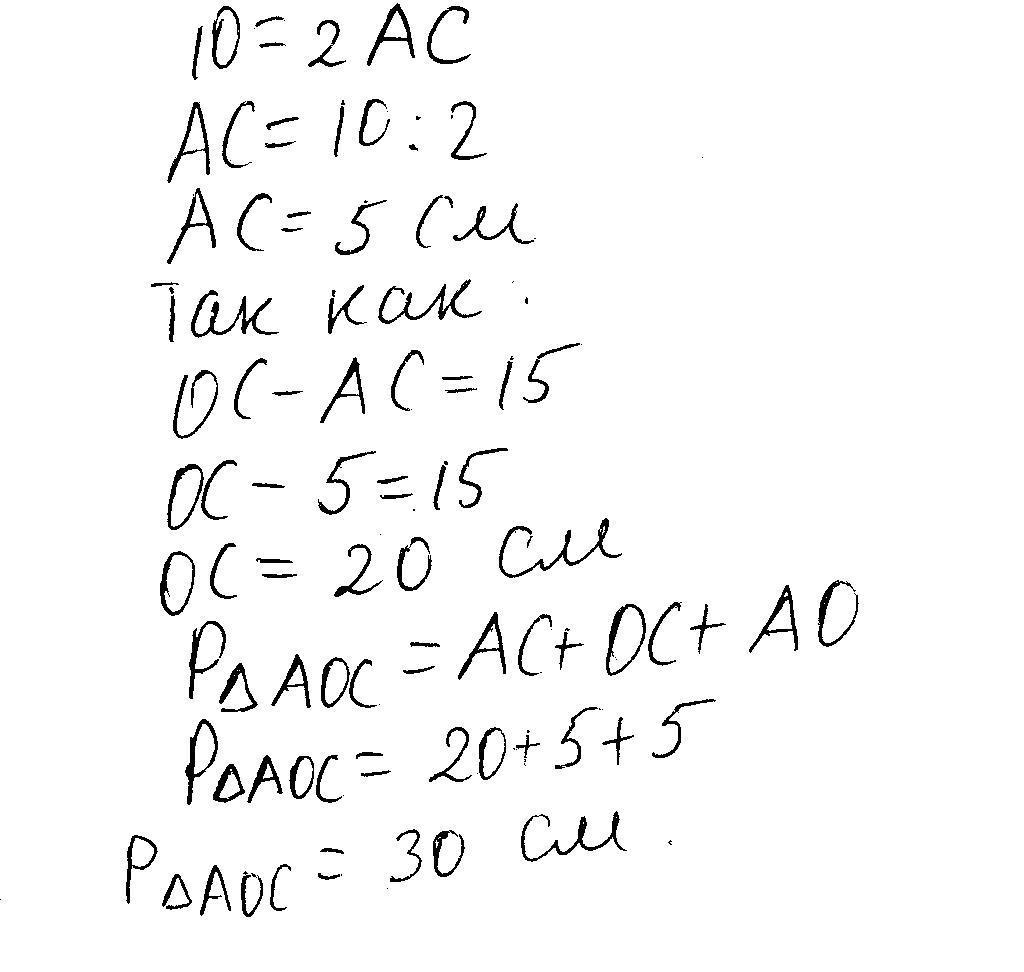 10 = 2 AC
AC = 10 : 2
AC = 5 см
Так как:
OC - AC = 15
OC - 5 = 15
OC = 20 см
P△AOC = AC + OC + AO
P△AOC = 20 + 5 + 5
P△AOC = 30 см.